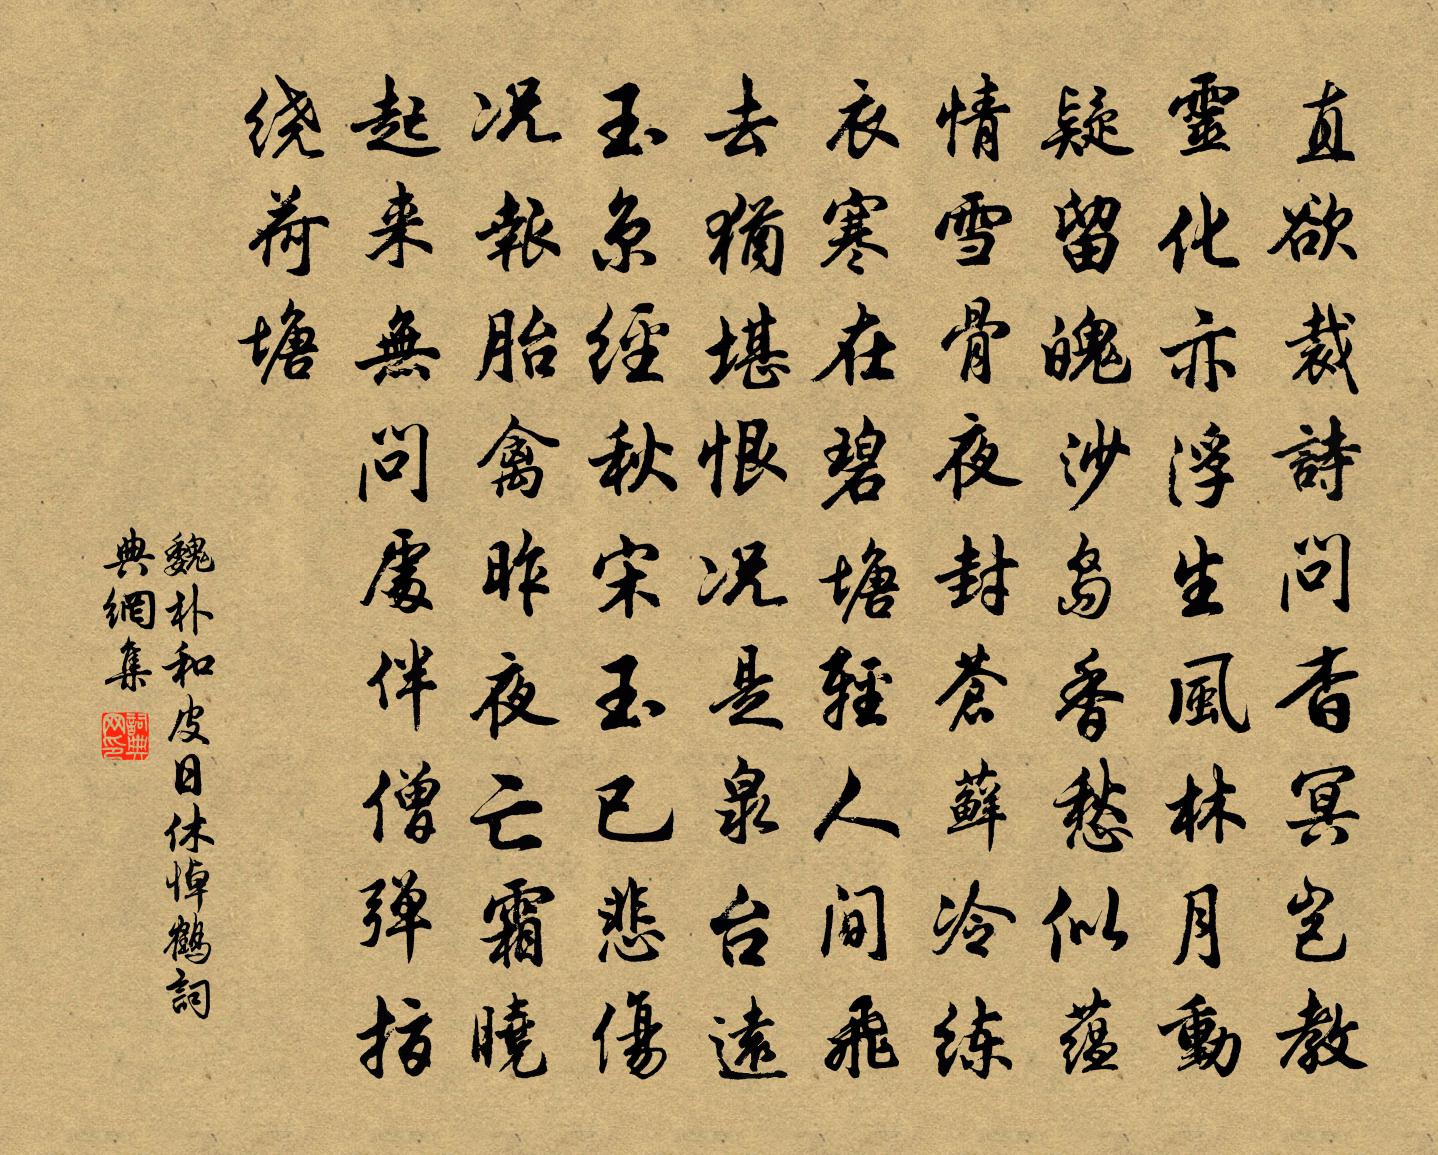 直欲裁詩問杳冥豈教
靈化亦浮生風林月動
疑留魄沙島香愁似蘊
情雪骨夜封蒼蘚冷練
衣寒在碧塘輕人間飛
去猶堪恨况是泉台遠
玉京經秋宋玉已悲傷
况報胎禽昨夜亡霜曉
起来無問處伴僧弾指
绕荷塘
魏朴和皮日休悼鶴詞
典網集
詞典网印